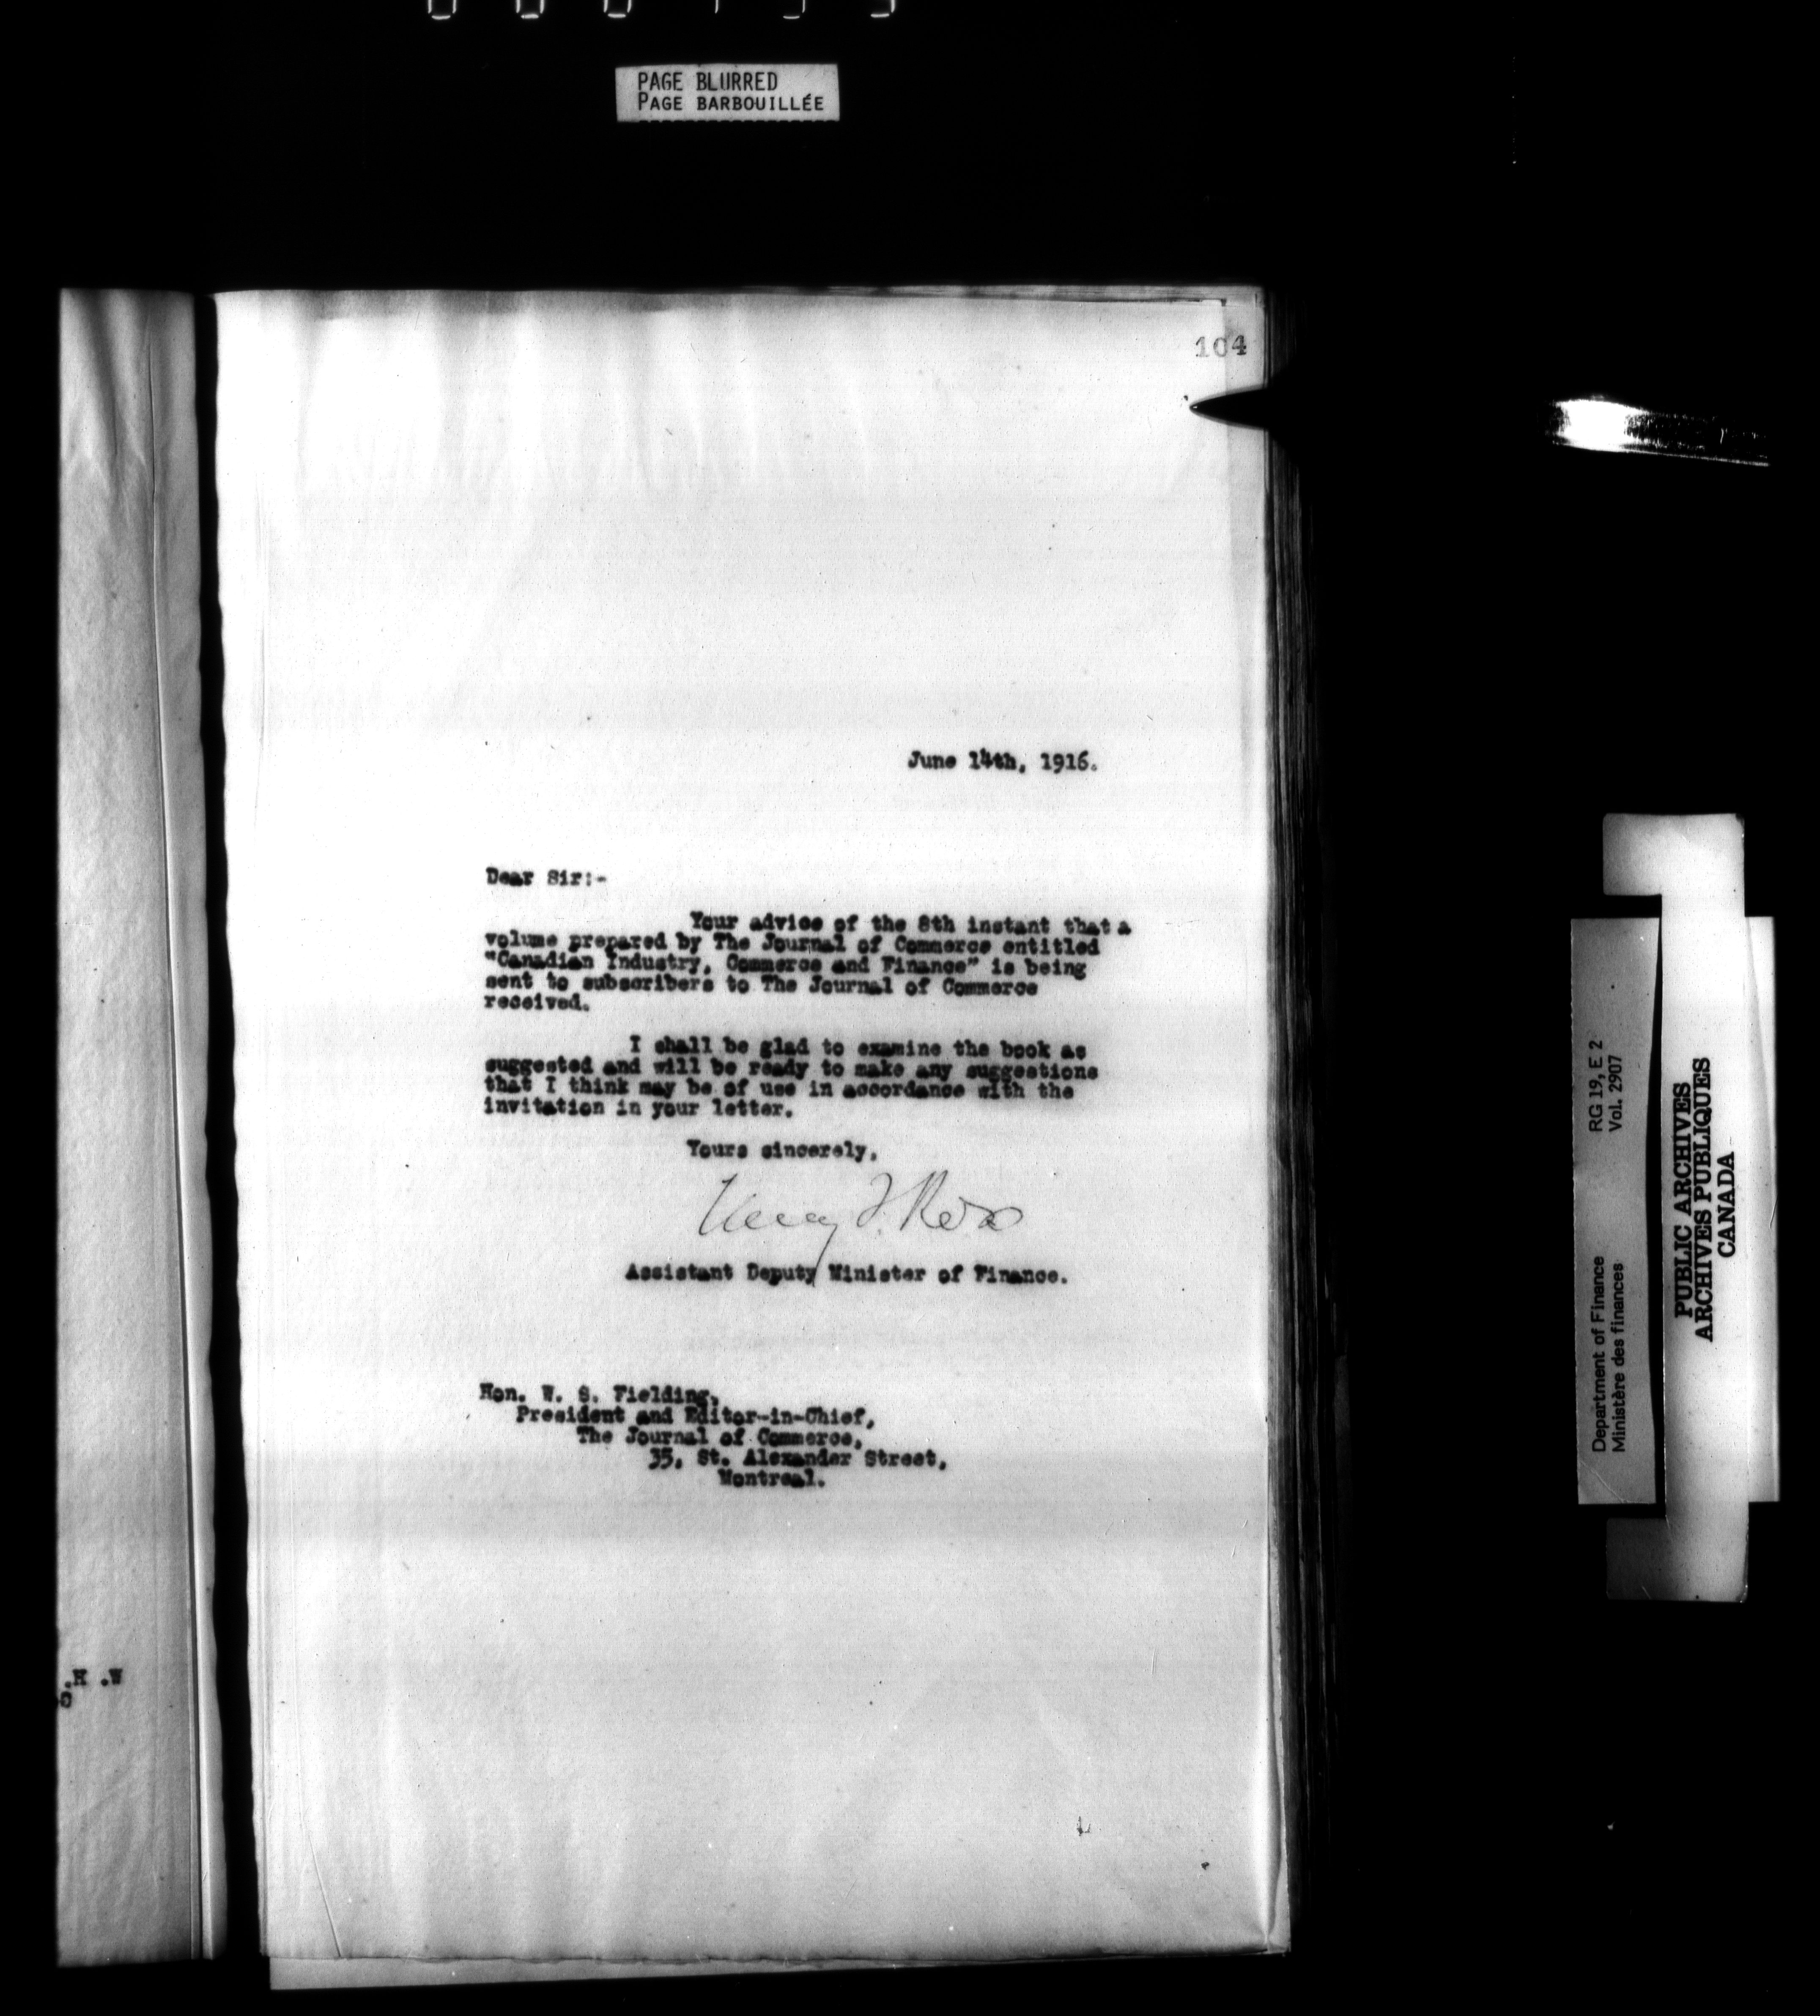 PAGE BLURRED
PAGE BARBOUILLÉE
104
June 14th, 1916.
Dear Sir:-
Your advice of the 8th instant that a
volume prepared by The Journal of Commerce entitled
"Canadian Industry, Commerce and Finance" is being
sent to subscribers to The Journal of Commerce
received.
I shall be glad to examine the book as
suggested and will be ready to make any suggestions
that I think may be of use in accordance with the
invitation in your letter.
Yours sincerely,
Henry T. Ross
Assistant Deputy Minister of Finance.
Hon. W. S. Fielding,
President and Editor-in-Chief,
The Journal of Commerce,
35, St. Alexander Street,
Montreal.
Department of Finance RG 19, E 2
Ministère des finances Vol. 2907
PUBLIC ARCHIVES
ARCHIVES PUBLIQUES
CANADA